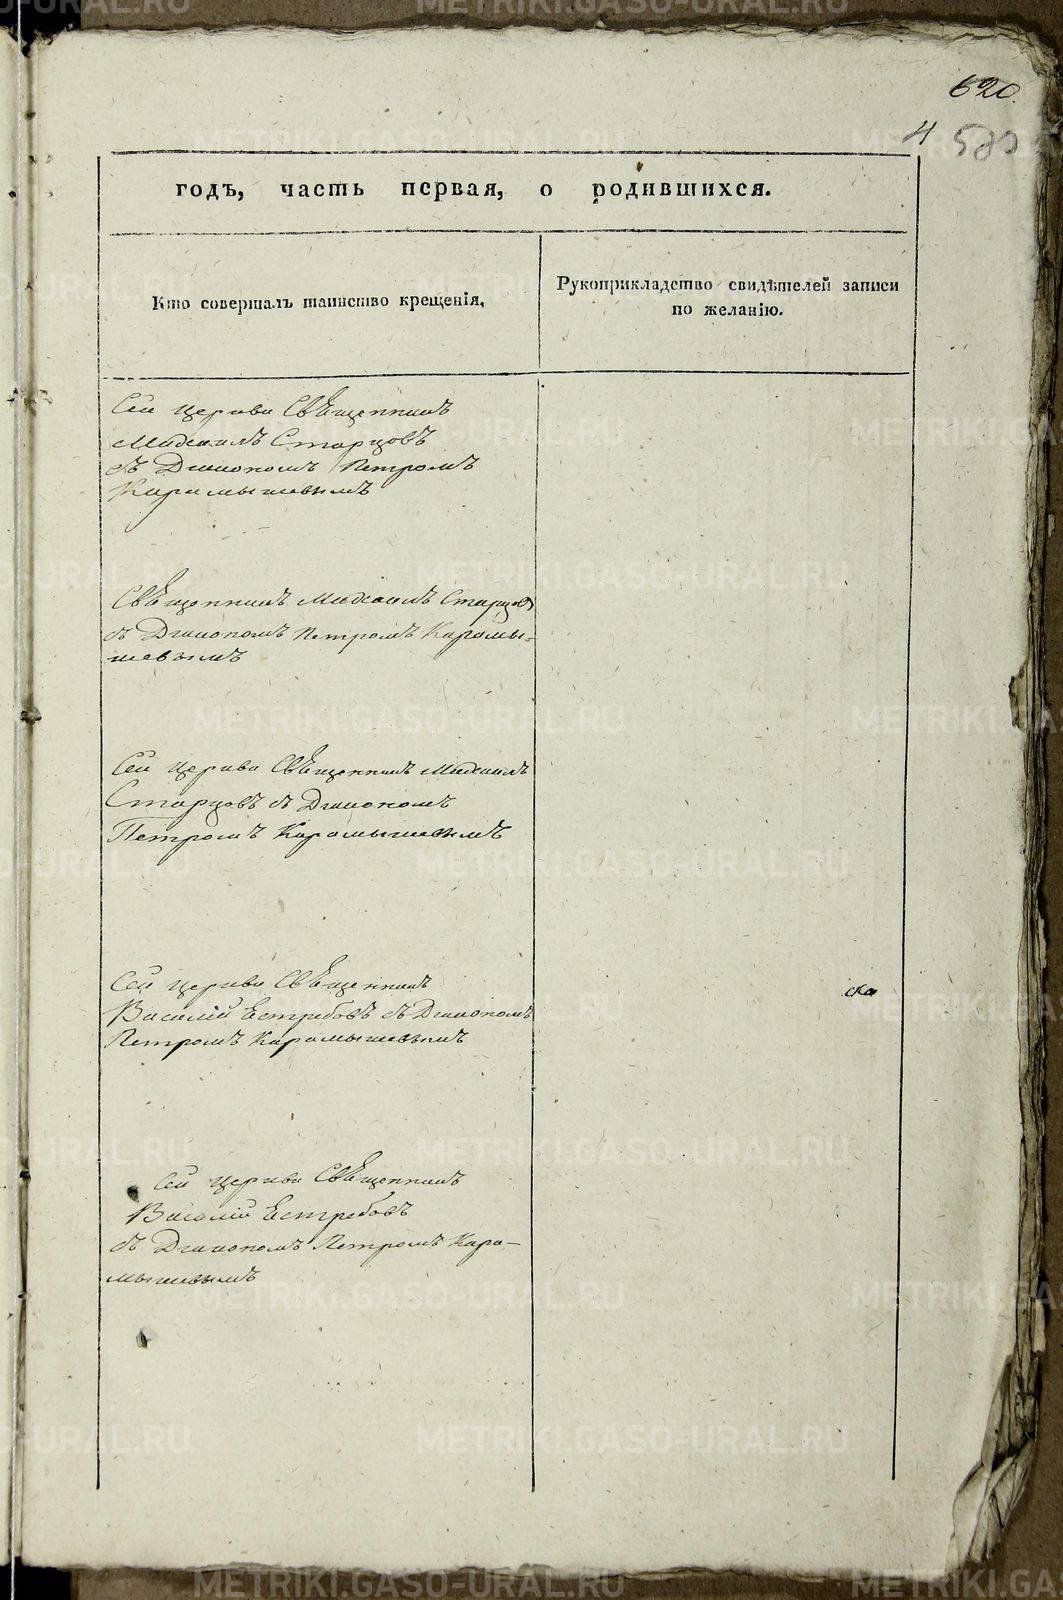 620.
4 580
годъ, часть первая, о родившихся.
Кто совершалъ таинство крещенія.
Рукоприкладство свидѣтелей записи
по желанію.
Сей церкви Священникъ
Михаилъ Старцовъ
съ Дьякономъ Петромъ
Карамышевымъ
Священникъ Михаилъ Старцовъ
съ Дьякономъ Петромъ Карамы-
шевымъ
Сей церкви Священникъ Михаилъ
Старцовъ съ Дьякономъ
Петромъ Карамышевымъ
Сей церкви Священникъ
Василій Естребовъ съ Дьякономъ
Петромъ Карамышевымъ
ска
Сей церкви Священникъ
Василій Естребовъ
съ Дьякономъ Петромъ Кара-
мышевымъ
METRIKI.GASO-URAL.RU